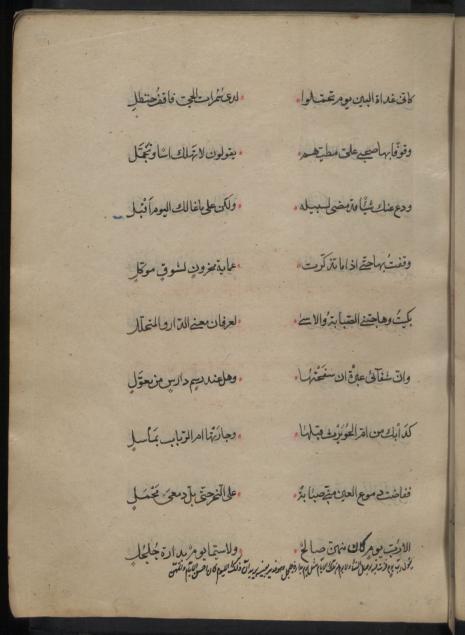 كاني غداة البين يوم تحملوا • لدى سمرات الحي ناقف حنظل
وقوفا بها صحبي علي مطيهم • يقولون لا تهلك اسا وتجمل
ودع عنك شيئا قد مضى لسبيله • ولكن على ما غالك اليوم اقبل
وقفت بها حتى اذا ما تذكرت • عماية محزون لشوق موكل
بكيت وهاجتني الصبابة والاسى • لعرفان معنى الدار والمتحلل
وان شفائي عبرة ان سفحتها • وهل عند رسم دارس من معول
كدابك من ام الحويرث قبلها • وجارتها ام الرباب بماسل
ففاضت دموع العين مني صبابة • على النحر حتى بل دمعي محملي
الا رب يوم كان منهن صالح • ولا سيما يوم بدارة جلجل